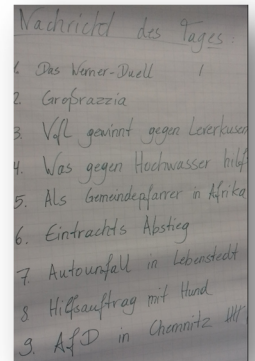 Nachricht des Tages:
1. Das Werner-Duell I
2. Großrazzia
3. VfL gewinnt gegen Leverkusen
4. Was gegen Hochwasser hilft
5. Als Gemeindepfarrer in Afrika
6. Eintrachts Abstieg
7. Autounfall in Lebenstedt
8 Hilfsauftrag mit Hund
9. AfD in Chemnitz